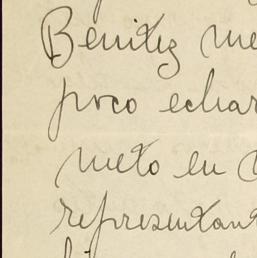 Benitez me
poco echar
meto en
representant